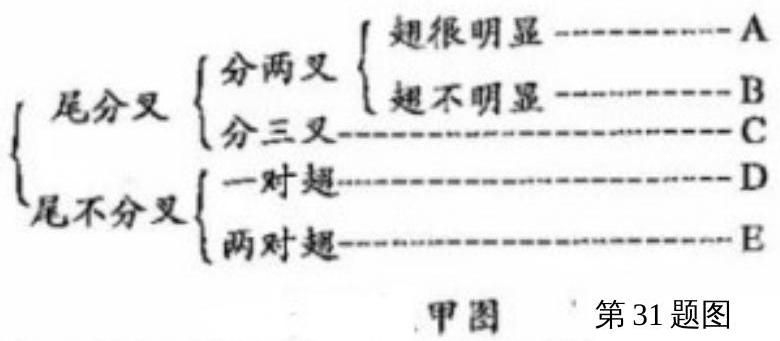 翅很明显 A
分两叉
翅不明显 B
尾分叉
分三叉 C
一对翅 D
尾不分叉
两对翅 E
甲图 第31题图